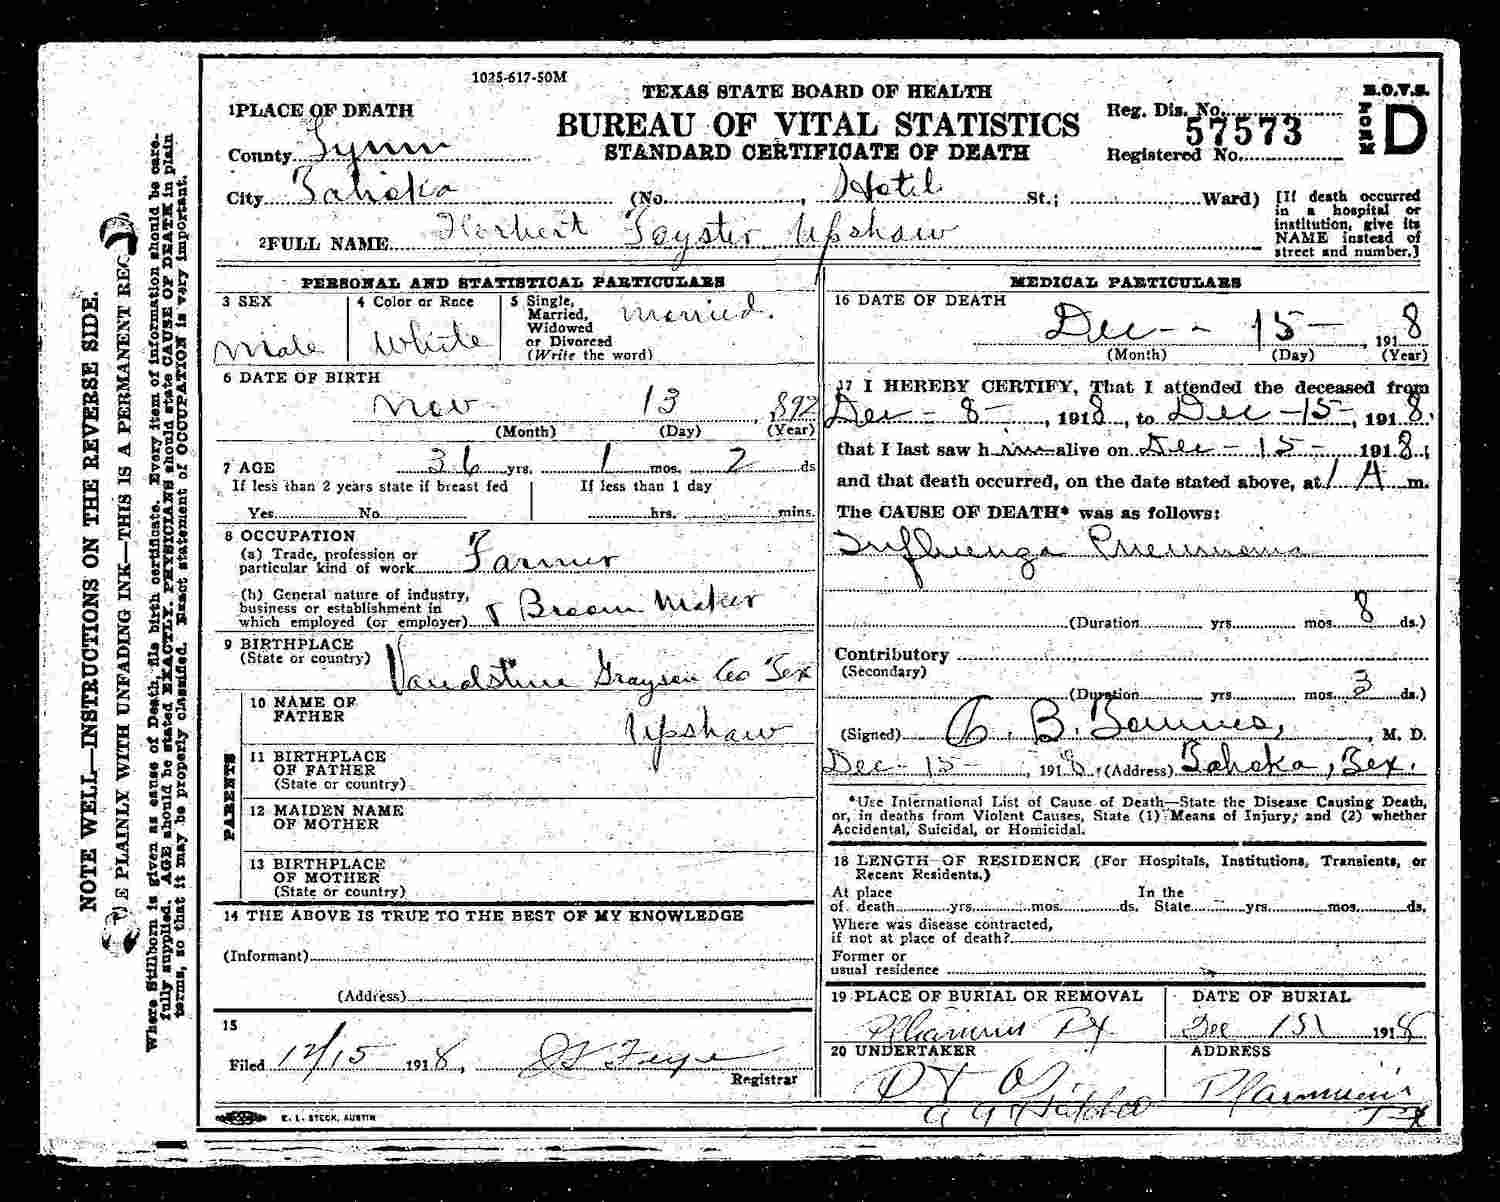 1025-617-50M
TEXAS STATE BOARD OF HEALTH
BUREAU OF VITAL STATISTICS
STANDARD CERTIFICATE OF DEATH
Reg. Dis. No.
57573
Registered No.
B.O.V.S.
FORM D
1 PLACE OF DEATH
County Lynn
City Tahoka (No. , Hotel St.; Ward)
[If death occurred in a hospital or institution, give its NAME instead of street and number.]
2 FULL NAME Herbert Foyster Upshaw
PERSONAL AND STATISTICAL PARTICULARS
3 SEX
Male
4 Color or Race
White
5 Single, Married, Widowed or Divorced (Write the word)
Married.
6 DATE OF BIRTH
Nov 13, 892
(Month) (Day) (Year)
7 AGE 36 yrs. 1 mos. 2 ds
If less than 2 years state if breast fed
Yes No
If less than 1 day
hrs. mins.
8 OCCUPATION
(a) Trade, profession or
particular kind of work Farmer
(b) General nature of industry,
business or establishment in
which employed (or employer) & Broom Maker
9 BIRTHPLACE
(State or country) Grayson Co Tex
PARENTS
10 NAME OF FATHER Upshaw
11 BIRTHPLACE OF FATHER
(State or country)
12 MAIDEN NAME OF MOTHER
13 BIRTHPLACE OF MOTHER
(State or country)
14 THE ABOVE IS TRUE TO THE BEST OF MY KNOWLEDGE
(Informant)
(Address)
15
Filed 12/15 1918,
Registrar
E. L. STECK, AUSTIN
MEDICAL PARTICULARS
16 DATE OF DEATH
Dec -- 15 -, 1918
(Month) (Day) (Year)
17 I HEREBY CERTIFY, That I attended the deceased from
Dec - 8 -, 1918, to Dec - 15 -, 1918,
that I last saw him alive on Dec - 15 - 1918;
and that death occurred, on the date stated above, at 1 A m.
The CAUSE OF DEATH* was as follows:
Influenza Pneumonia
(Duration yrs mos. 8 ds.)
Contributory
(Secondary)
(Duration yrs mos. 3 ds.)
(Signed) B. , M. D.
Dec - 15 -, 1918, (Address) Tahoka, Tex.
*Use International List of Cause of Death—State the Disease Causing Death,
or, in deaths from Violent Causes, State (1) Means of Injury; and (2) whether
Accidental, Suicidal, or Homicidal.
18 LENGTH OF RESIDENCE (For Hospitals, Institutions, Transients, or
Recent Residents.)
At place of death yrs. mos. ds. In the State yrs. mos. ds.
Where was disease contracted,
if not at place of death?
Former or
usual residence
19 PLACE OF BURIAL OR REMOVAL
DATE OF BURIAL
Dec 15, 1918
20 UNDERTAKER
ADDRESS
NOTE WELL—INSTRUCTIONS ON THE REVERSE SIDE.
E PLAINLY WITH UNFADING INK—THIS IS A PERMANENT REC
Where Stillborn is given as cause of Death, file birth certificate. Every item of information should be care-
fully supplied. AGE should be stated EXACTLY. PHYSICIANS should state CAUSE OF DEATH in plain
terms, so that it may be properly classified. Exact statement of OCCUPATION is very important.